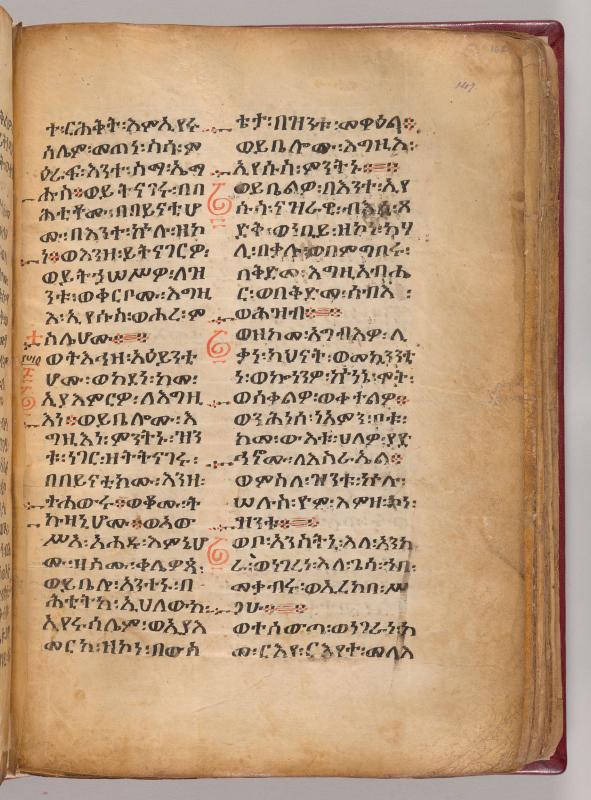 ተ፡ርሕቅት፡እምኢየሩ
ሳሌም፡መጠነ፡ስሳ፡ም
ዕራፍ፡እንተ፡ስማ፡ኤማ
ሑስ፨ወይትናገሩ፡በበ
ሕቲቶሙ፡በበይናቲሆ
ሙ፡በእንተ፡ኵሉ፡ዘኮ
ነ፨ወእንዘ፡ይትናገርዎ፡
ወይትኃሠሥዎ፡ለዝ
ንቱ፡ወቀርቦሙ፡እግዚ
እ፡ኢየሱስ፡ወሖረ፡ም
ስሌሆሙ፨
ወትእኅዘ፡አዕይንቲ
ሆሙ፡ወከደነ፡ከመ፡
ኢያእምርዎ፡ለእግዚ
እነ፨ወይቤሎሙ፡እ
ግዚእነ፡ምንትኑ፡ዝን
ቱ፡ነገር፡ዘትትናገሩ፡
በበይናቲክሙ፡እንዘ፡
ተሐውሩ፨ወቆሙ፡ት
ኩዛኒሆሙ፨ወአው
ሥአ፡አሐዱ፡እምኔሆ
ሙ፡ዘስሙ፡ቀሌዎጳ፡
ወይቤሉ፡አንተኑ፡ባ
ሕቲትከ፡ኢሀለውከ፡
ኢየሩሳሌም፡ወኢያእ
መርከ፡ዘኮነ፡በውስ
ቴታ፡በዝንቱ፡መዋዕል፨
ወይቤሎሙ፡እግዚእ፡
ኢየሱስ፡ምንትኑ፨
ወይቤልዎ፡በእንተ፡ኢየ
ሱስ፡ናዝራዊ፡ብእሲ፡ጻ
ድቅ፡ወነቢይ፡ዘኮነ፡ከሃ
ሊ፡በቃሉ፡ወበምግባሩ፡
በቅድመ፡እግዚአብሔ
ር፡ወበቅድመ፡ሰብእ፡
ወሕዝብ፨
ወዘከመ፡አግብእዎ፡ሊ
ቃነ፡ካህናት፡ወመኳንንቲ
ነ፡ወኰነንዎ፡ኵነኔ፡ሞት፡
ወሰቀልዎ፡ወቀተልዎ፨
ወንሕነሰ፡ነአምን፡ቦቱ፡
ከመ፡ውእቱ፡ሀለዎ፡ያድ
ኅኖሙ፡ለእስራኤል፨
ወምስለ፡ዝንቱ፡ኵሉ፡
ሠሉስ፡ዮም፡እምዘ፡ኮነ፡
ዝንቱ፨
ወቦ፡አንስትኒ፡እለ፡አንከ
ራ፡ወነገረነ፡እለ፡ጌሳ፡ኀበ፡
መቃብሩ፡ወኢረከባ፡ሥ
ጋሁ፨
ወተሰወጣ፡ወነገራነ፡ከ
መ፡ርእየ፡ርእየተ፡መላእ
147